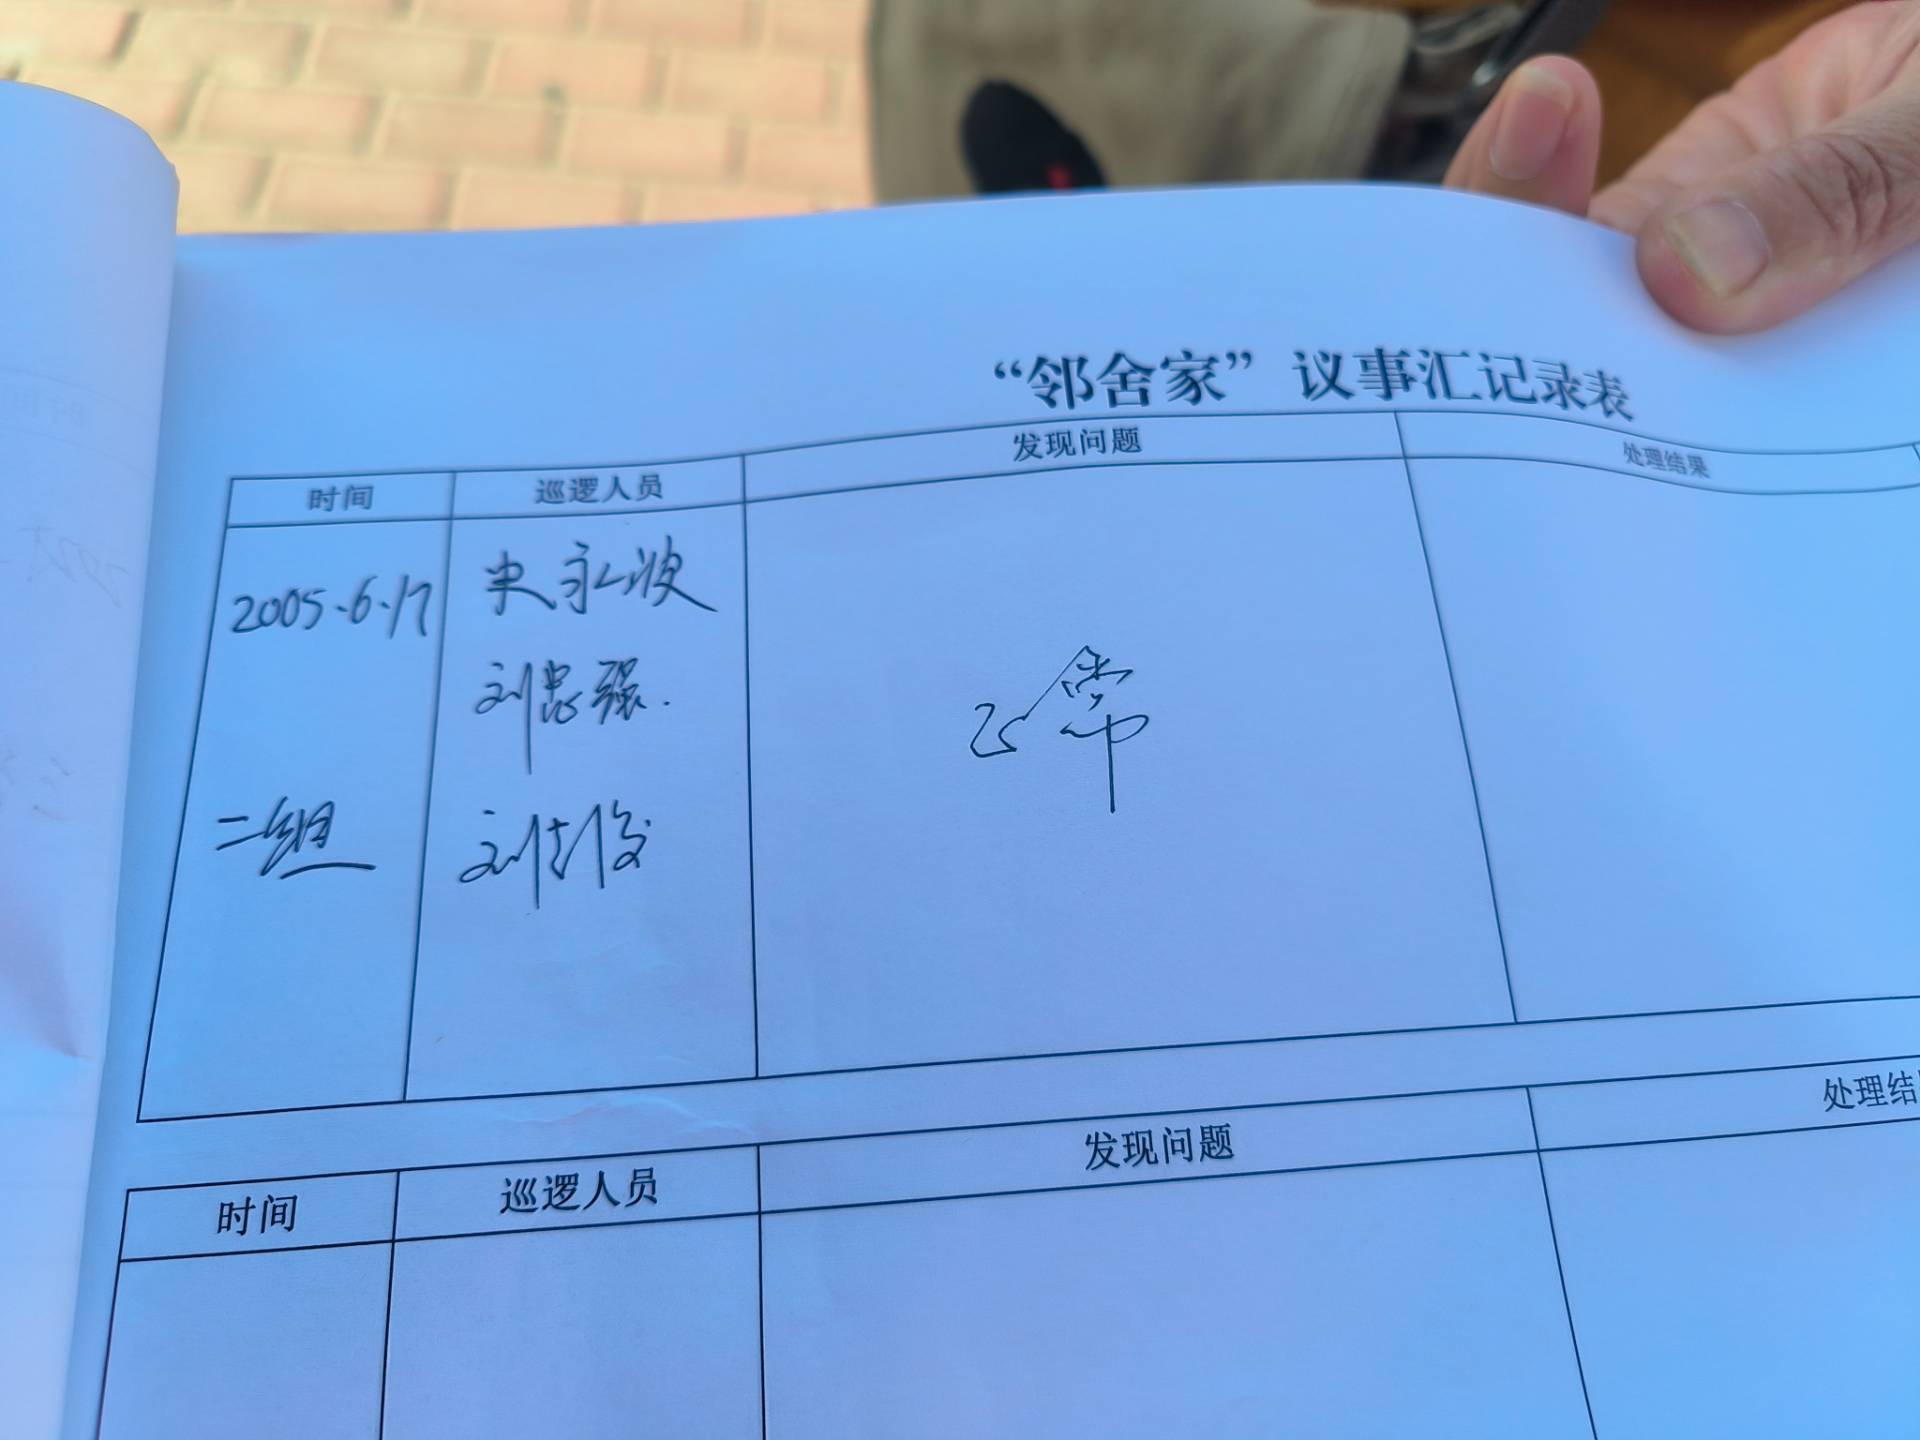 “邻舍家”议事汇记录表
时间 巡逻人员 发现问题 处理结果
2005.6.17 史永波
刘忠强.
正常
二组 刘志俊
时间 巡逻人员 发现问题 处理结